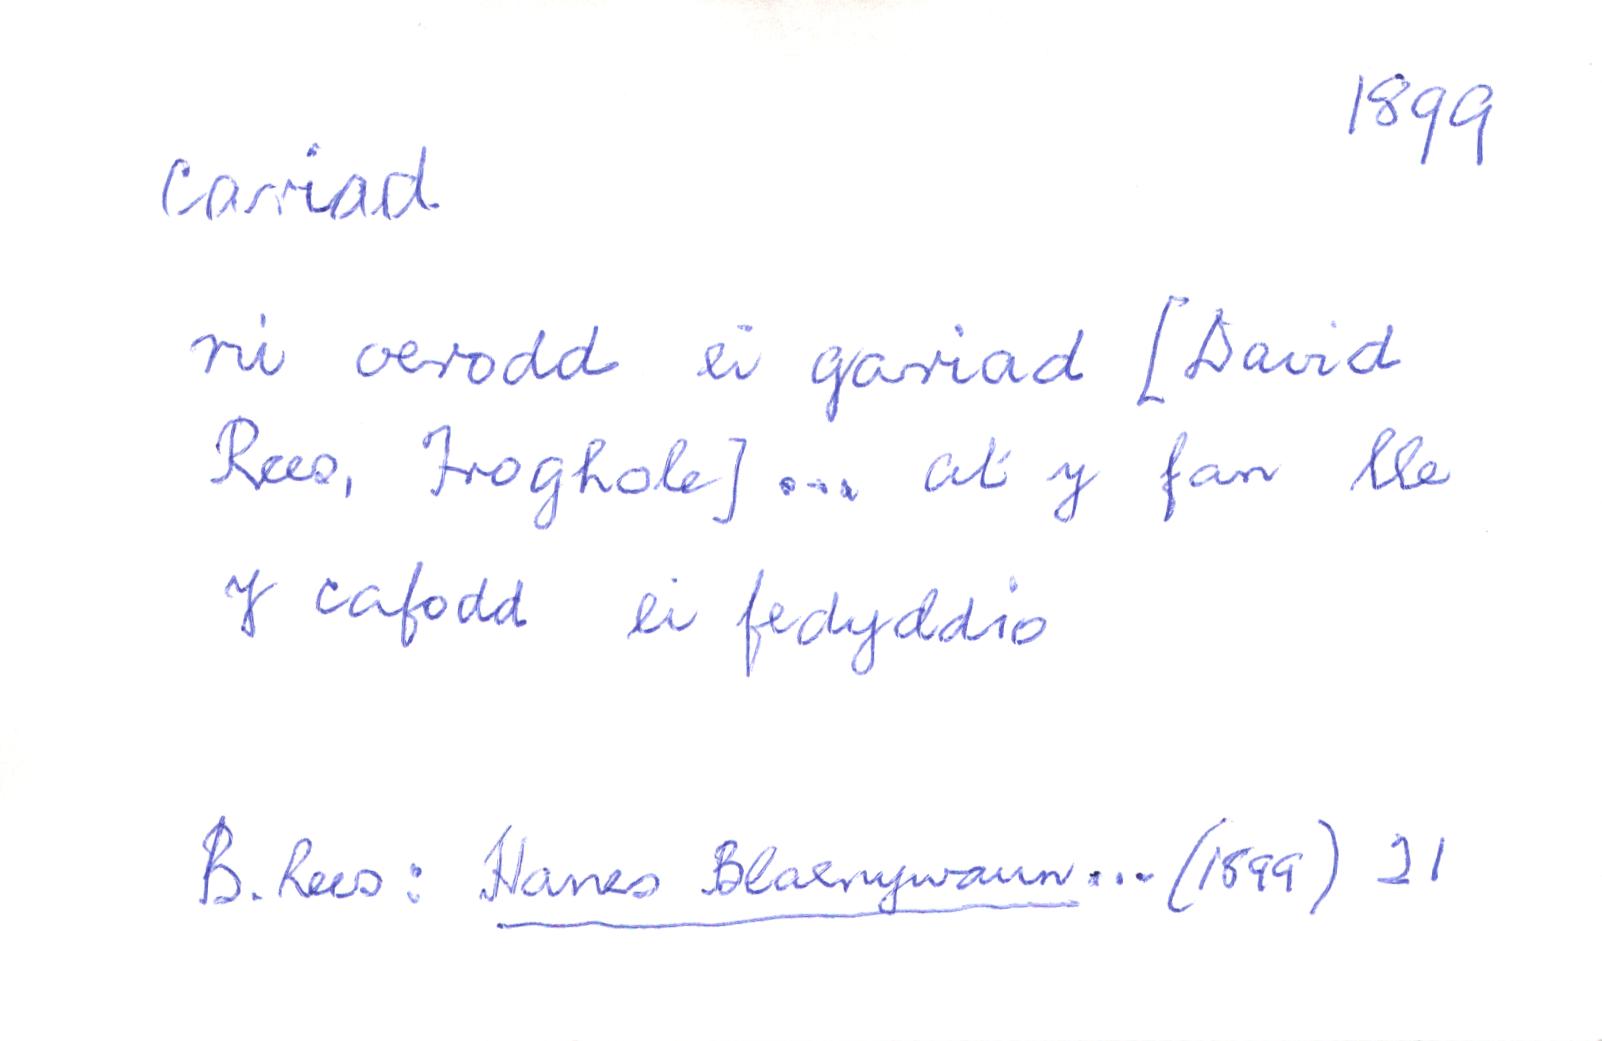 1899
cariad
ni oerodd ei gariad [David
Rees, Froghole] ... at y fan lle
y cafodd ei fedyddio
B. Rees: Hanes Blaenywaun ... (1899) 21